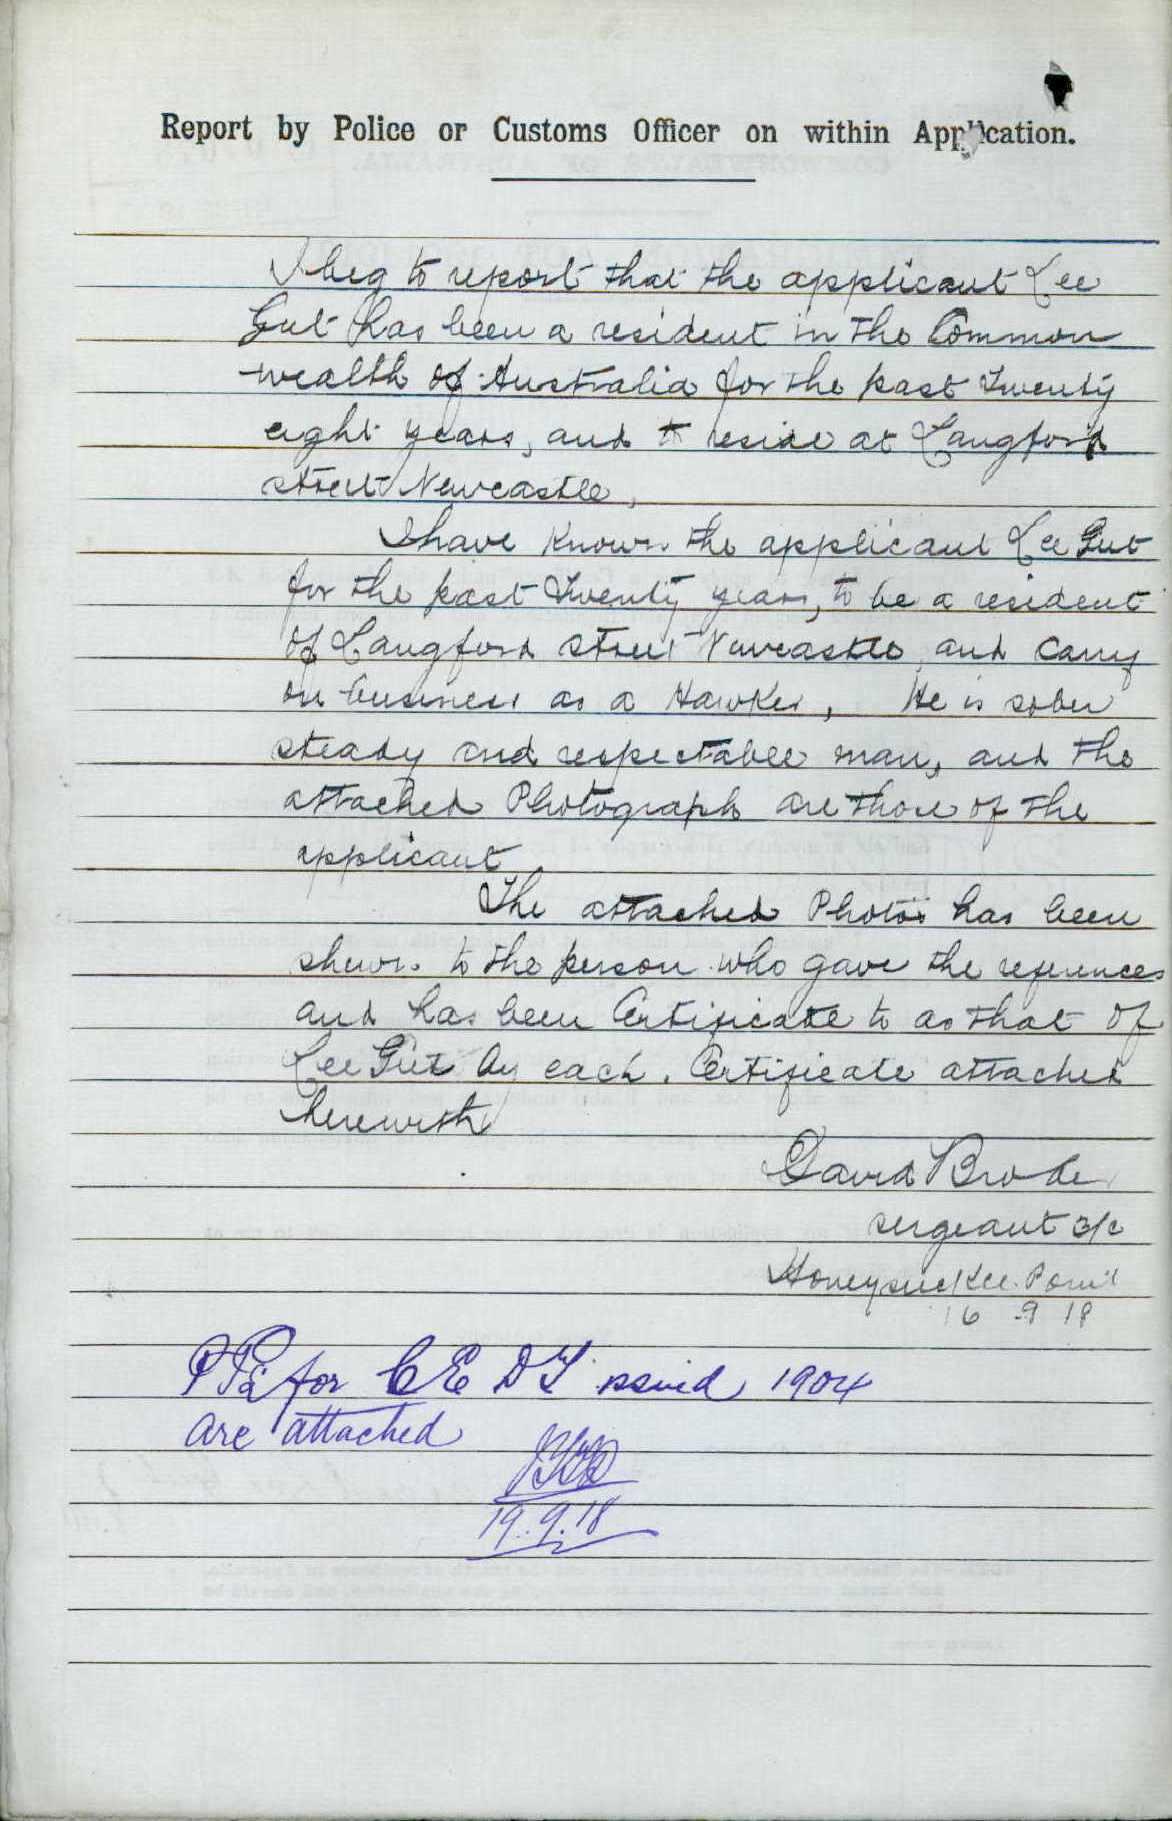 Report by Police or Customs Officer on within Application.
I beg to report that the applicant Lee
Gut has been a resident in the Common
wealth of Australia for the past Twenty
eight years, and to reside at Langford
street Newcastle,
I have known the applicant Lee Gut
for the past Twenty years, to be a resident
of Langford street Newcastle and carry
on business as a Hawker, He is sober
steady and respectable man, and the
attached Photograph are those of the
applicant
The attached Photos has been
shewn to the person who gave the references
and has been Certificate to as that of
Lee Gut by each. Certificate attached
herewith
David Brodie
sergeant 3/c
Honeysuckle Point
16 9 18
for C E D T issued 1904
are attached
19.9.18